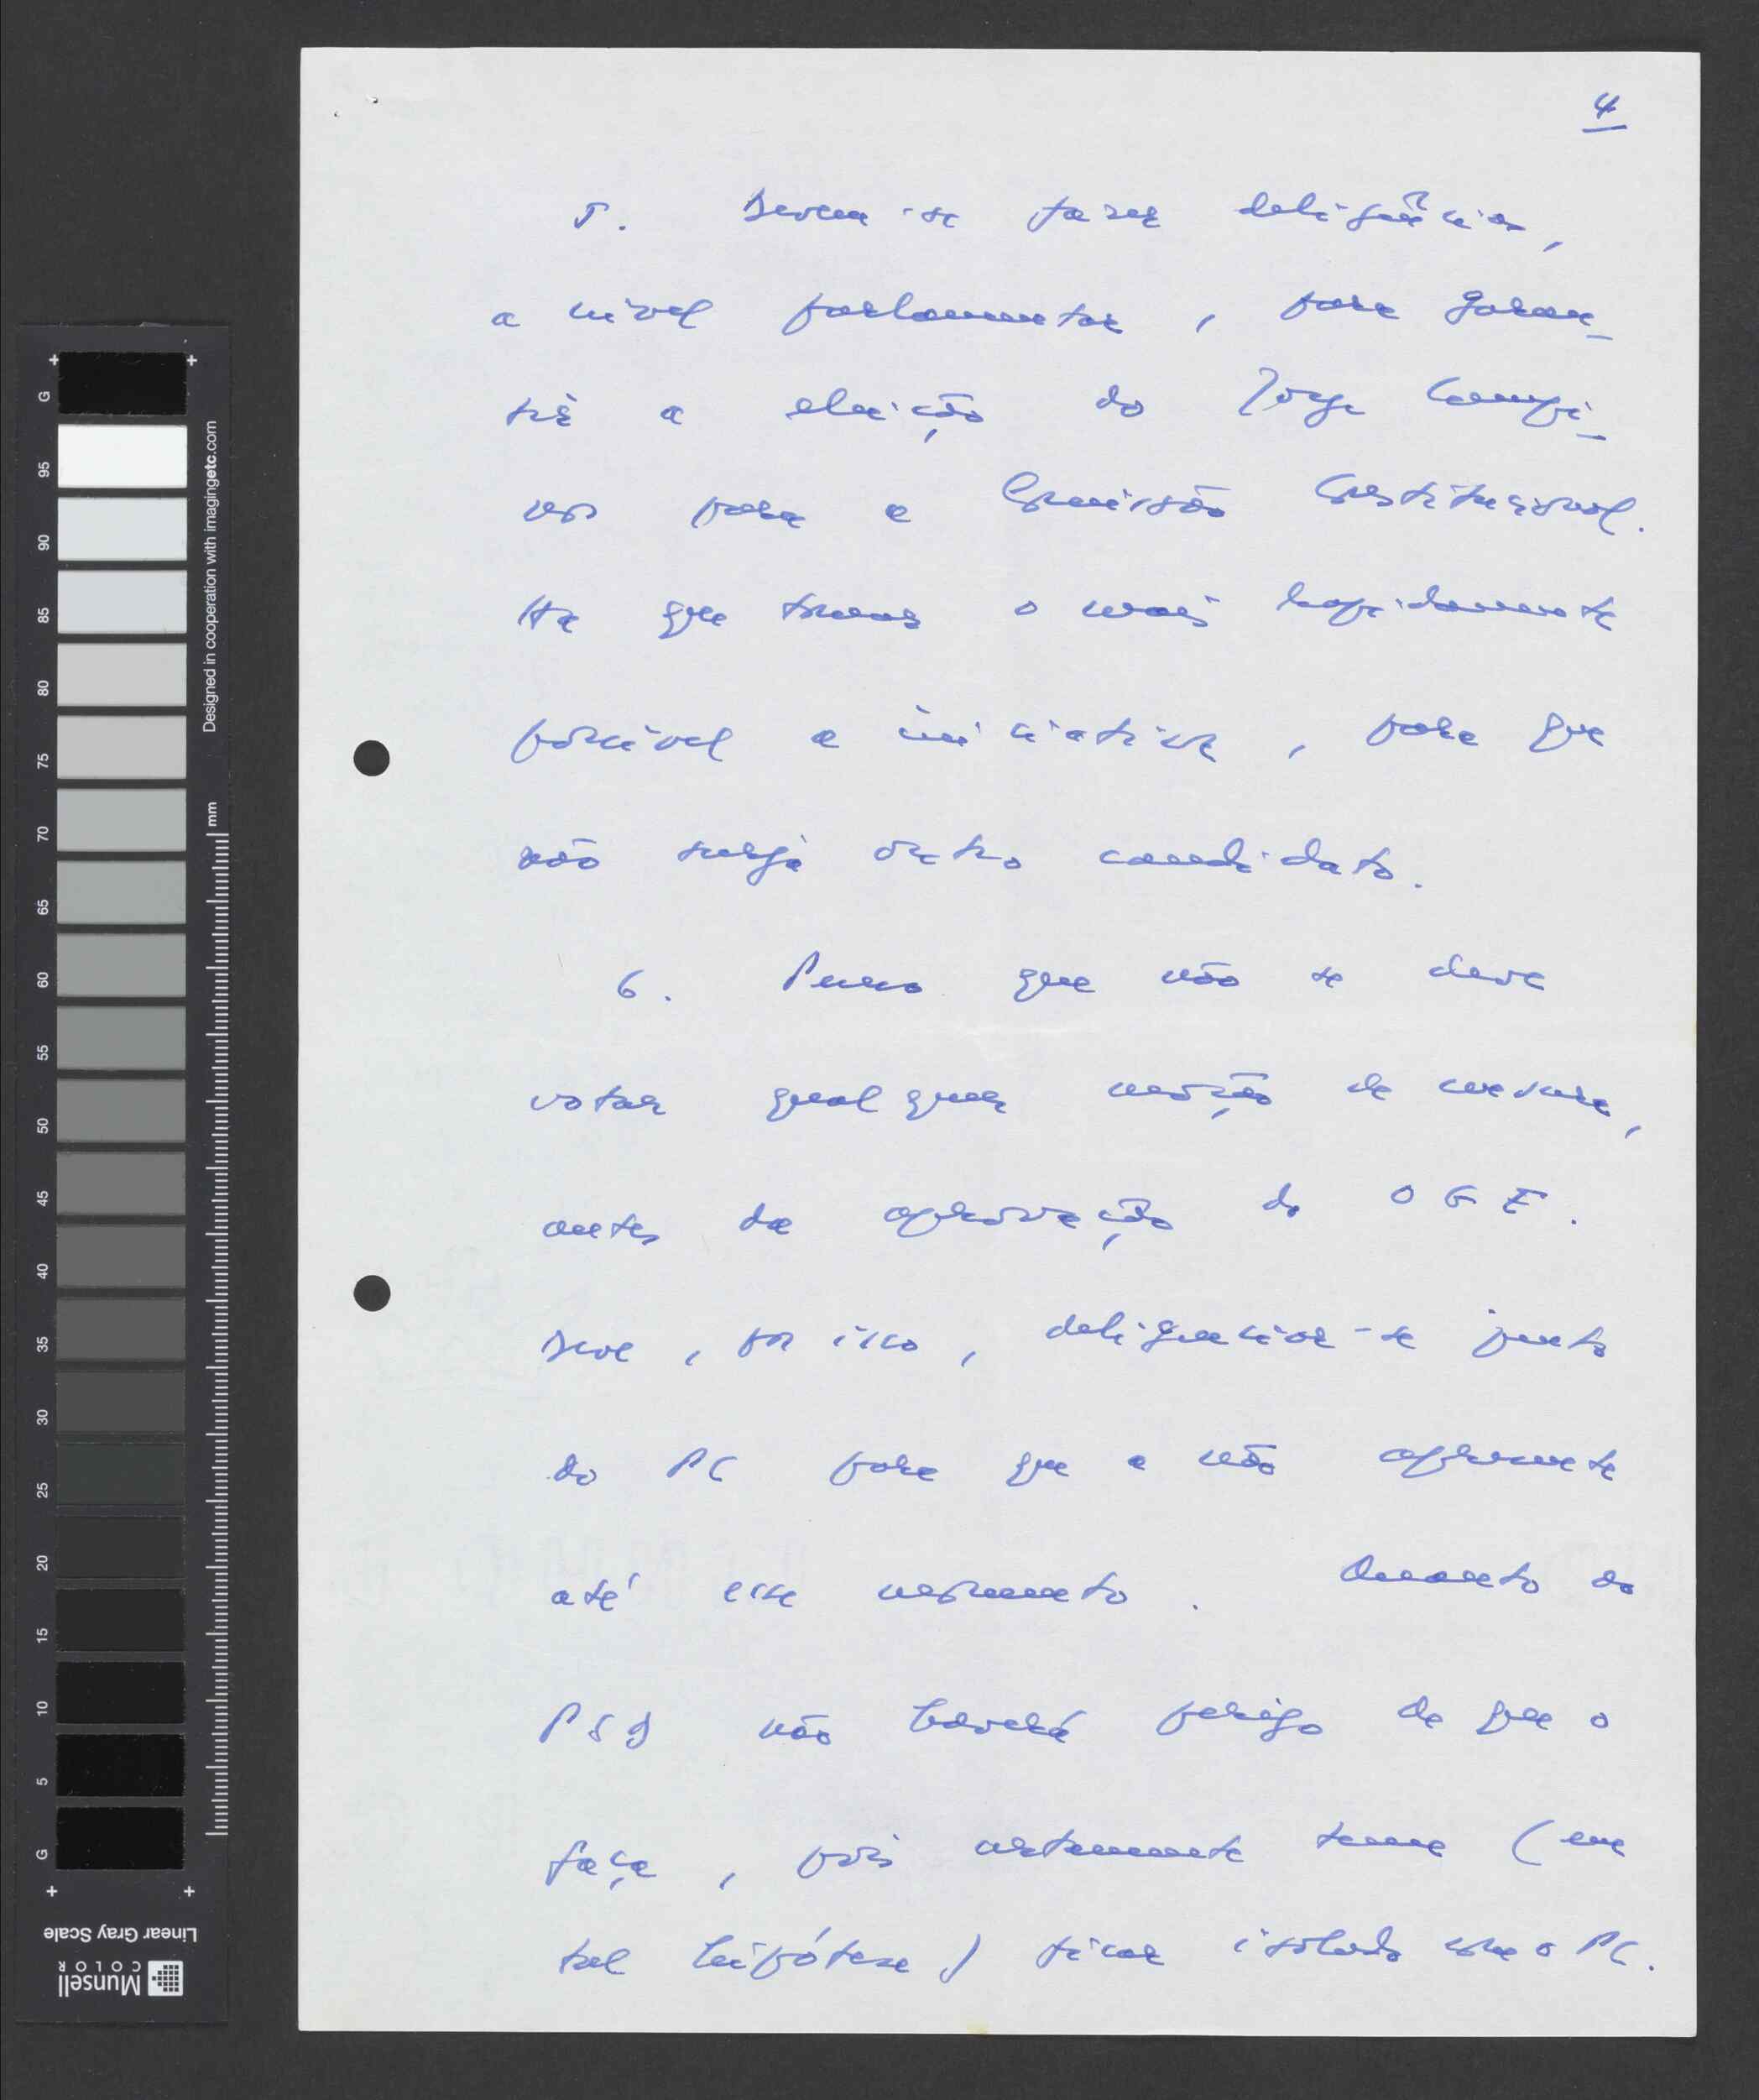 4
5. Devem-se fazer deligências,
a nível parlamentar, para garan-
tir a eleição do Jorge Campi-
nos para a Comissão Constitucional.
Há que tomar o mais rapidamente
possível a iniciativa, para que
não surja outro candidato.
6. Penso que não se deve
votar qualquer moção de censura,
antes da aprovação do OGE.
Deve, por isso, deligenciar-se junto
do PC para que a não apresente
até esse momento. Quanto ao
PSD não haverá perigo de que o
faça, pois certamente teme (em
tal hipótese) ficar isolado com o PC.
G 95 90 85 80 75 70 65 60 55 50 45 40 35 30 25 20 15 10 5 G
Designed in cooperation with imagingetc.com
mm
Linear Gray Scale
Munsell
COLOR